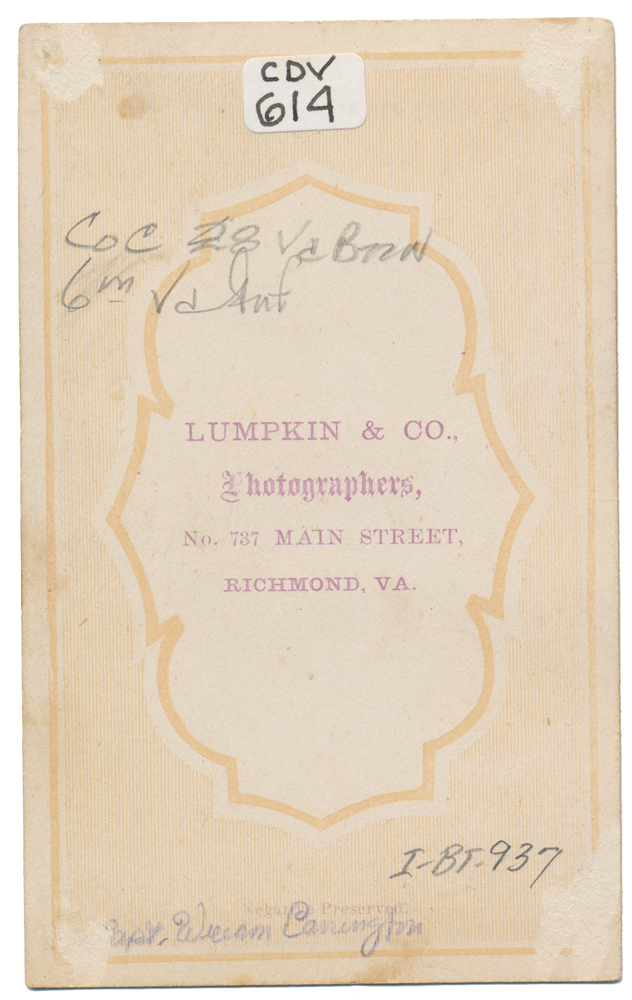 CDV
614
Co C 28 Va Bn
6th Va Inf
LUMPKIN & CO.,
Photographers,
No. 737 MAIN STREET,
RICHMOND, VA.
I-BT-937
Negatives Preserved.
Capt. William Carrington